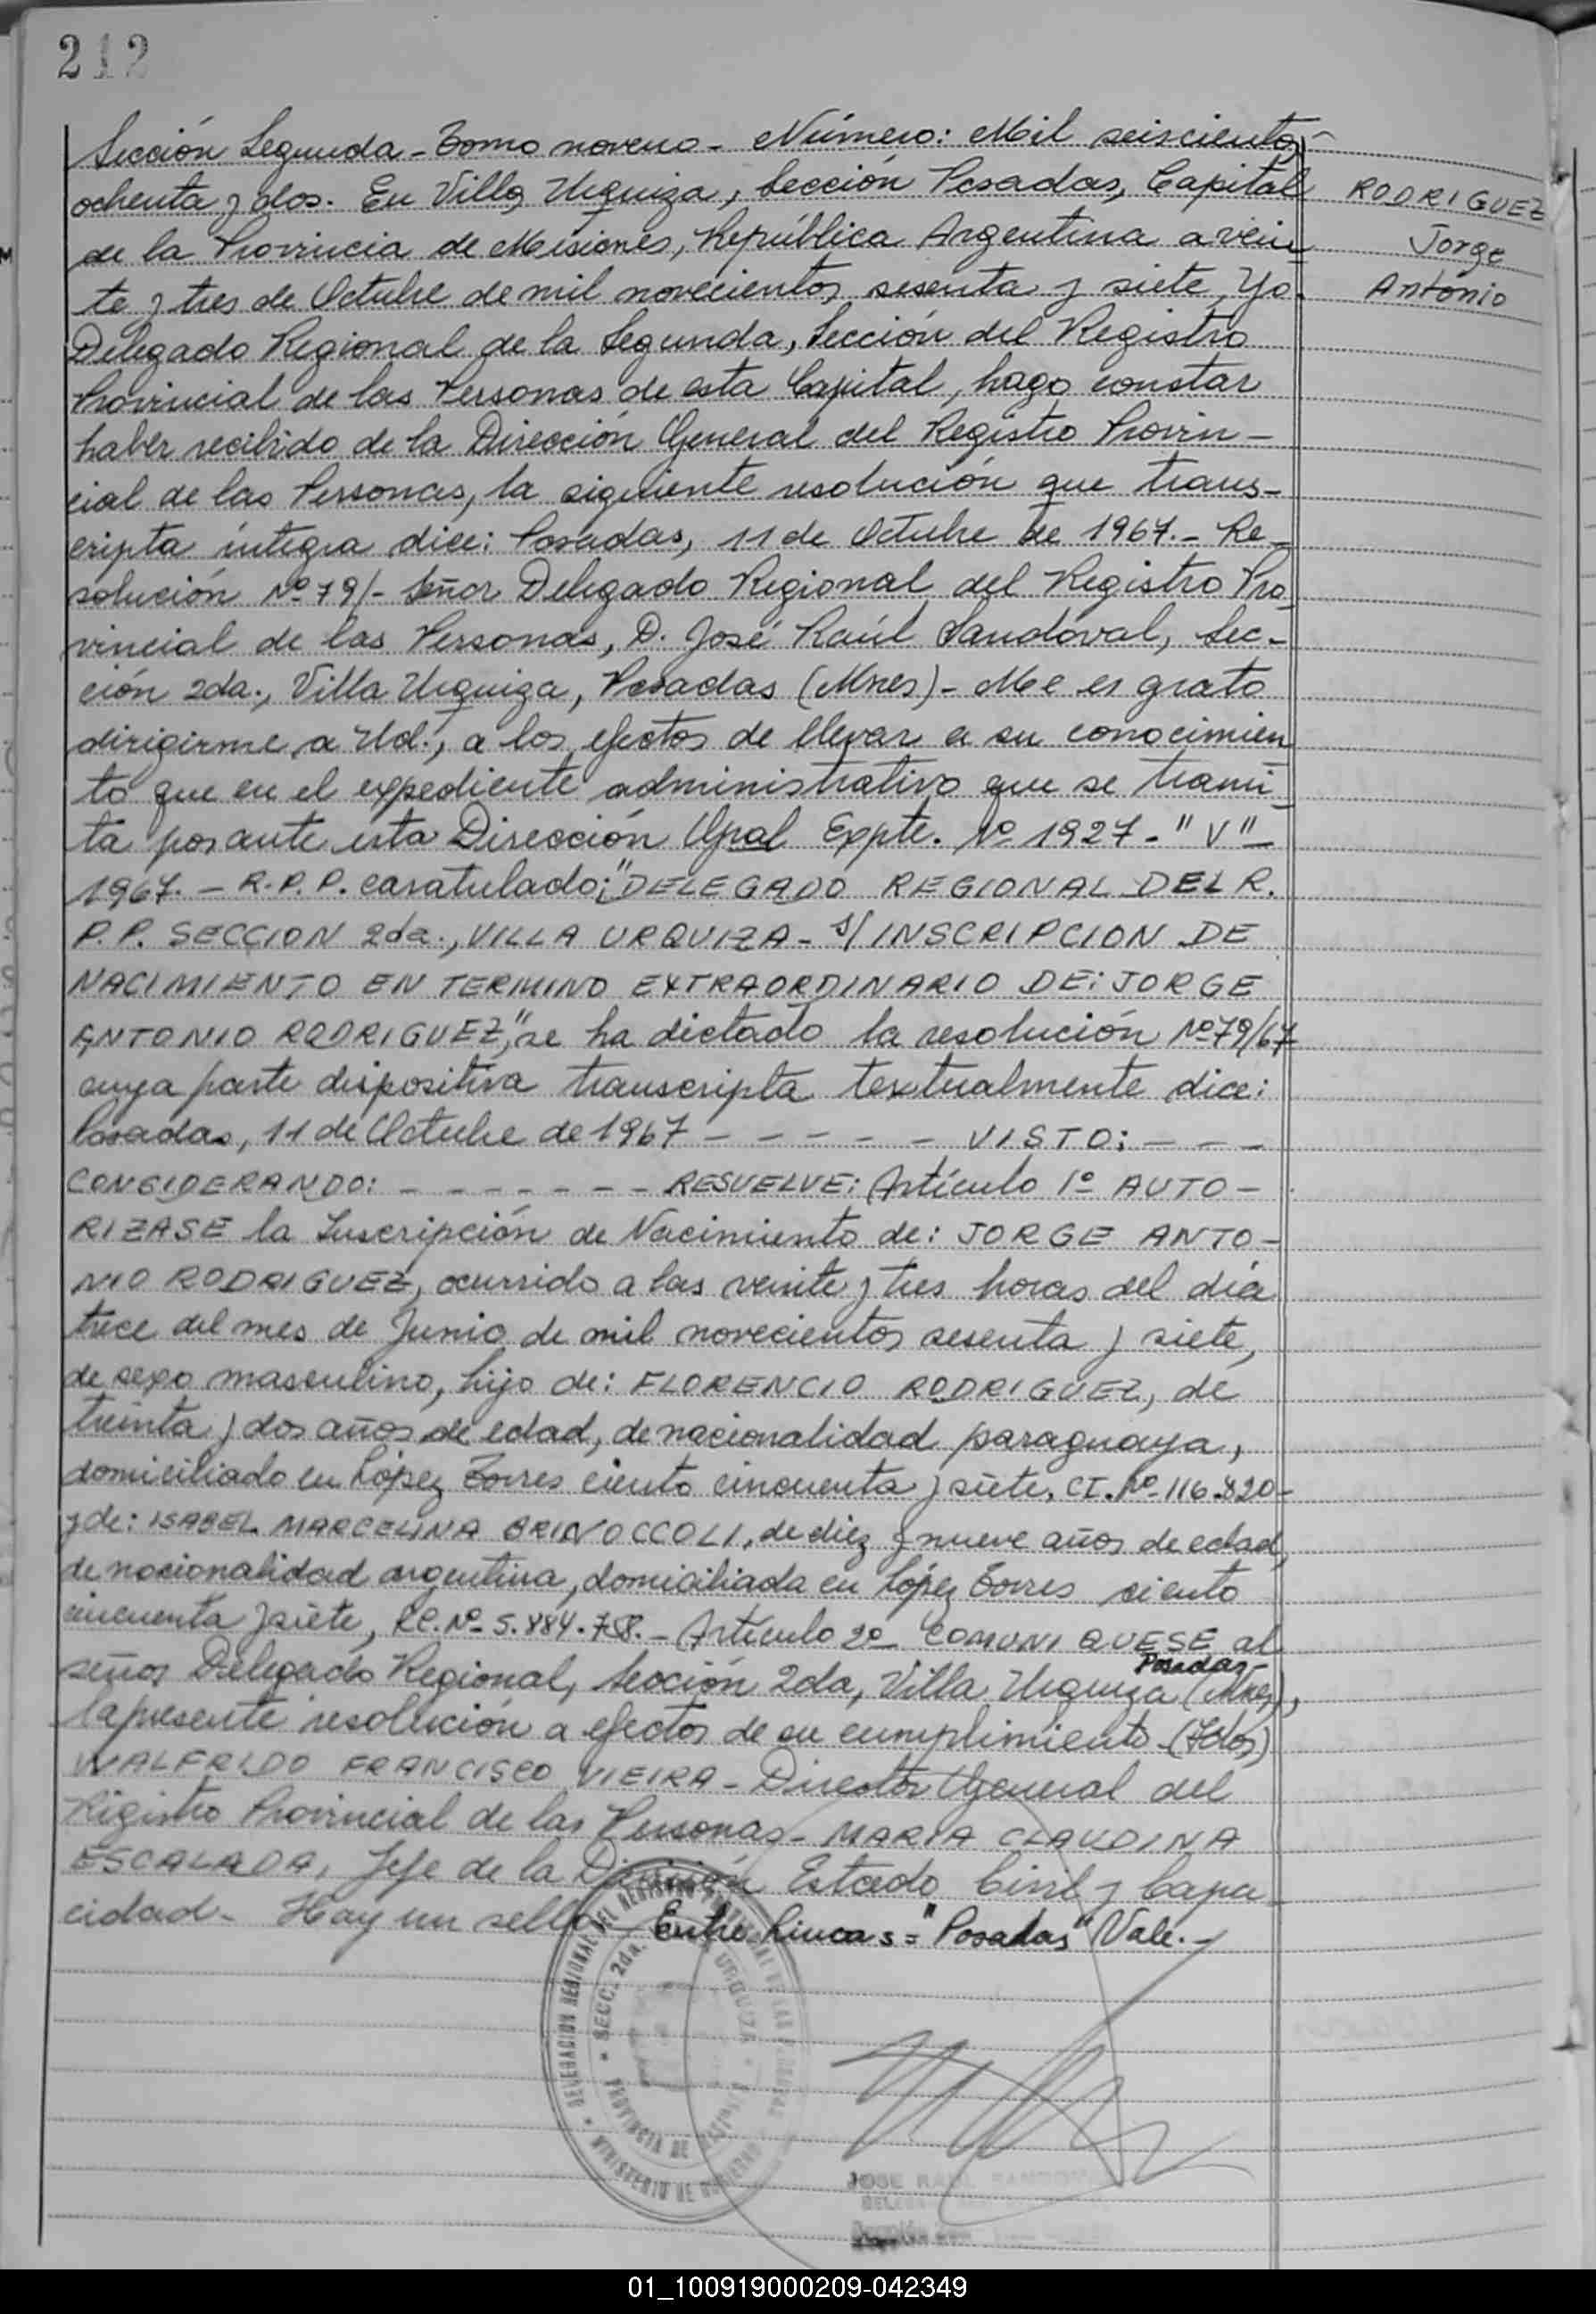 212
Sección Segunda - Tomo noveno - Número: Mil seiscientos
ochenta y dos. En Villa Urquiza, Sección Posadas, Capital
de la Provincia de Misiones, República Argentina a vein
te y tres de Octubre de mil novecientos sesenta y siete, Yo
Delegado Regional de la Segunda, Sección del Registro
Provincial de las Personas de esta Capital, hago constar
haber recibido de la Dirección General del Registro Provin-
cial de las Personas, la siguiente resolución que trans-
cripta íntegra dice: Posadas, 11 de Octubre de 1967.- Re-
solución Nº 79/- Señor Delegado Regional del Registro Pro
vincial de las Personas, D. José Raúl Sandoval, Sec-
ción 2da., Villa Urquiza, Posadas (Mnes)- Me es grato
dirigirme a Ud., a los efectos de llevar a su conocimien
to que en el expediente administrativo que se trami
ta por ante esta Dirección Gral Expte. Nº 1927-"V"-
1967.- R.P.P. caratulado: "DELEGADO REGIONAL DEL R.
P.P. SECCION 2da., VILLA URQUIZA - s/ INSCRIPCION DE
NACIMIENTO EN TERMINO EXTRAORDINARIO DE: JORGE
ANTONIO RODRIGUEZ," se ha dictado la resolución Nº 79/67
cuya parte dispositiva transcripta textualmente dice:
Posadas, 11 de Octubre de 1967 - - - - - VISTO: - - -
CONSIDERANDO: - - - - - - - RESUELVE: Artículo 1º AUTO-
RIZASE la Inscripción de Nacimiento de: JORGE ANTO-
NIO RODRIGUEZ, ocurrido a las veinte y tres horas del día
trece del mes de Junio de mil novecientos sesenta y siete,
de sexo masculino, hijo de: FLORENCIO RODRIGUEZ, de
treinta y dos años de edad, de nacionalidad paraguaya,
domiciliado en López Torres ciento cincuenta y siete, CI. Nº 116.820-
y de: ISABEL MARCELINA BRINOCCOLI, de diez y nueve años de edad,
de nacionalidad argentina, domiciliada en López Torres ciento
cincuenta y siete, Nº 5.884. - Artículo 2º COMUNIQUESE al
Posadas
señor Delegado Regional, Sección 2da, Villa Urquiza (Mnes),
la presente resolución a efectos de su cumplimiento - (Fdos)
WALFRIDO FRANCISCO VIEIRA - Director General del
Registro Provincial de las Personas - MARIA CLAUDINA
ESCALADA, Jefe de la División Estado Civil y Capa-
cidad - Hay un sello - Entre líneas = "Posadas" Vale.-
RODRIGUEZ
Jorge
Antonio
DELEGACION REGIONAL DEL REGISTRO PROVINCIAL DE LAS PERSONAS
SECC. 2da. URQUIZA
PROVINCIA DE MISIONES
MINISTERIO DE GOBIERNO
JOSE RAUL SANDOVAL
01_100919000209-042349